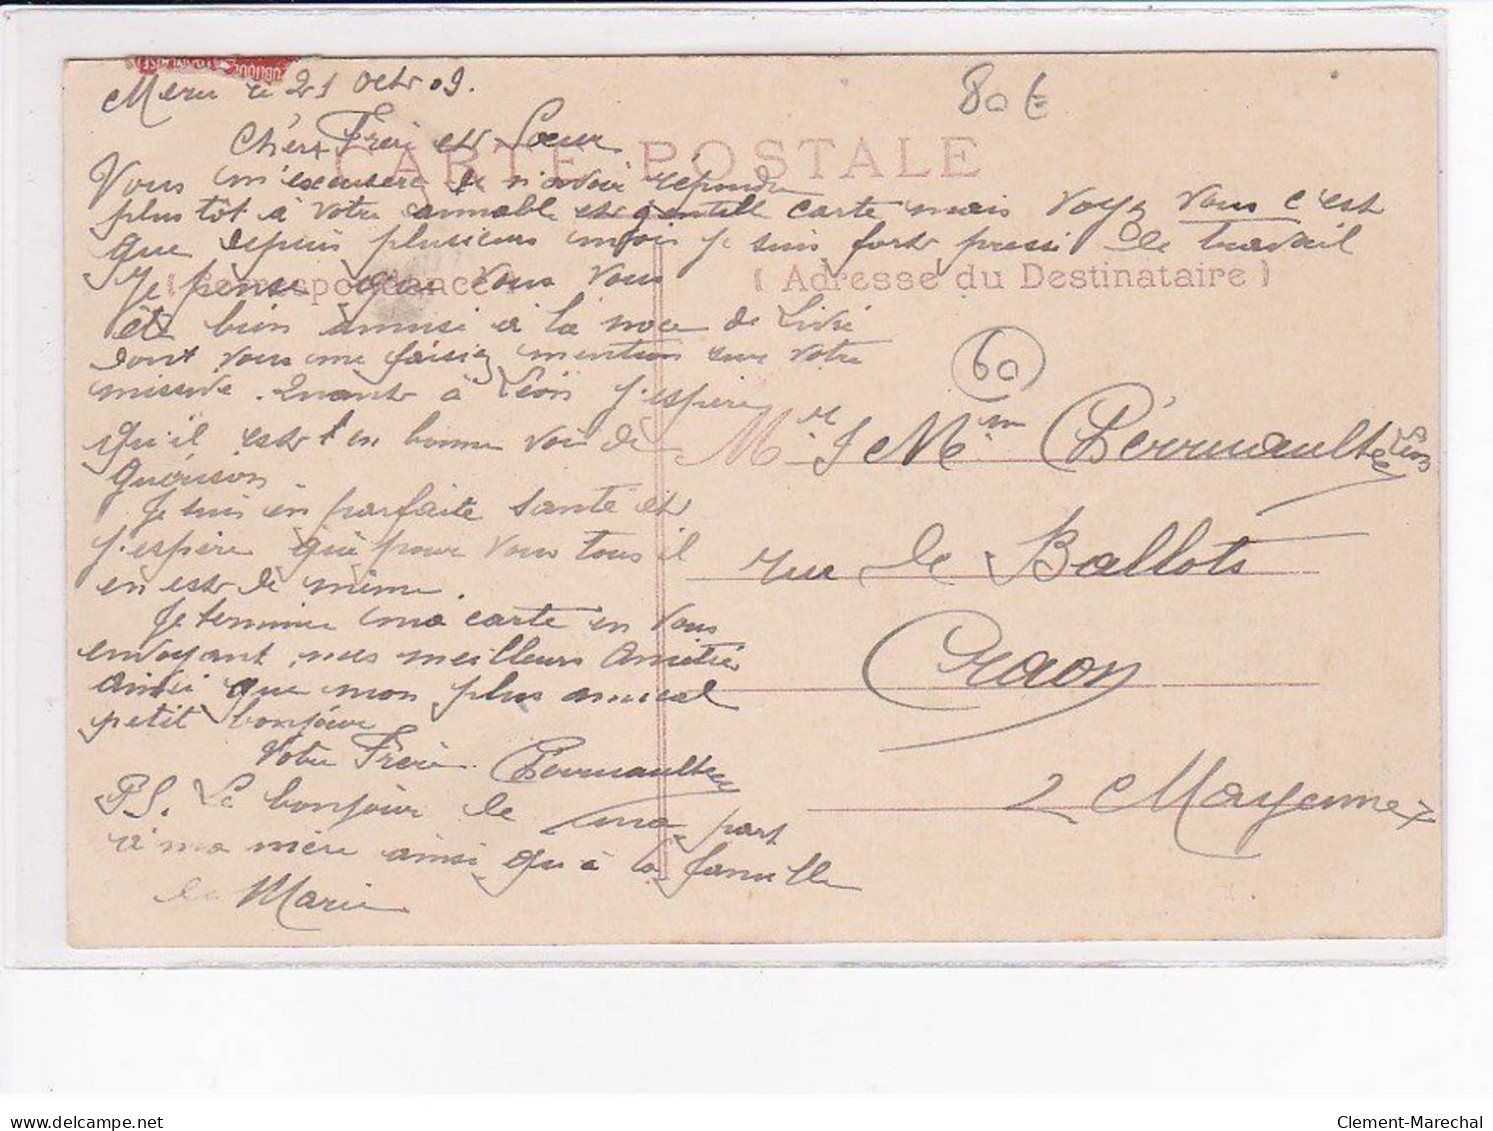 Meru le 21 Octr 09.
80 €
CARTE POSTALE
Chers Frère et Sœur
Vous m'excuserez de n'avoir répondu
plus tôt à votre aimable et gentille carte mais voyez vous c'est
que depuis plusieurs mois je suis fort pressé de travail
( Correspondance )
( Adresse du Destinataire )
Je pense que vous vous
êtes bien amusé à la noce de Livré
dont vous me faisiez mention sur votre
missive. Quant à Léon j'espère
qu'il est en bonne voie de
guérison
Je suis en parfaite santé et
j'espère que pour vous tous il
en est de même.
Je termine ma carte en vous
envoyant mes meilleurs Amitiés
ainsi que mon plus amical
petit bonjour
Votre Frère Perrault
PS. Le bonjour de ma part
à ma mère ainsi qu'à la famille
de Marie
60
Mr & Mme Léon
rue de Ballots
Craon
Mayenne
delcampe.net
Clement-Marechal